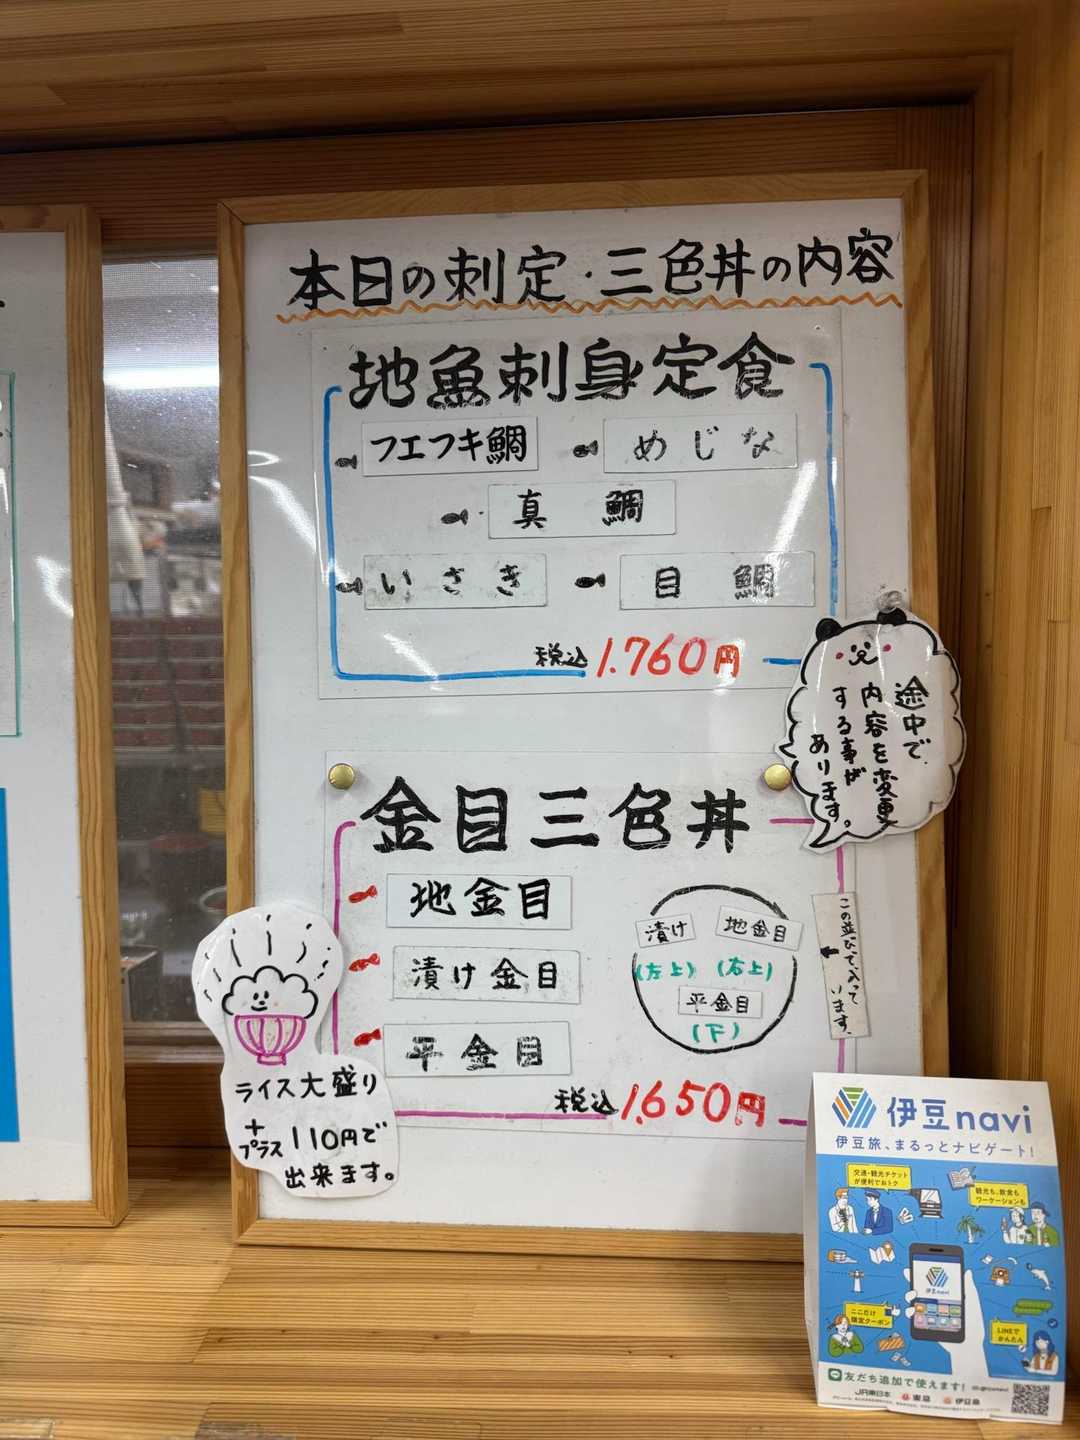 本日の刺定・三色丼の内容
地魚刺身定食
フエフキ鯛
めじな
真鯛
いさき
目鯛
税込1.760円
途中で
内容を変更
する事が
あります。
金目三色丼
地金目
漬け金目
平金目
漬け
地金目
(左上)
(右上)
平金目
(下)
この並びで入って
います。
税込1.650円
ライス大盛り
+
プラス110円で
出来ます。
伊豆navi
伊豆旅、まるっとナビゲート!
交通・観光チケット
が便利でおトク
観光も、飲食も
ワーケーションも
伊豆navi
ここだけ
限定クーポン
LINEで
かんたん
友だち追加で使えます!
JR東日本
東急
伊豆急